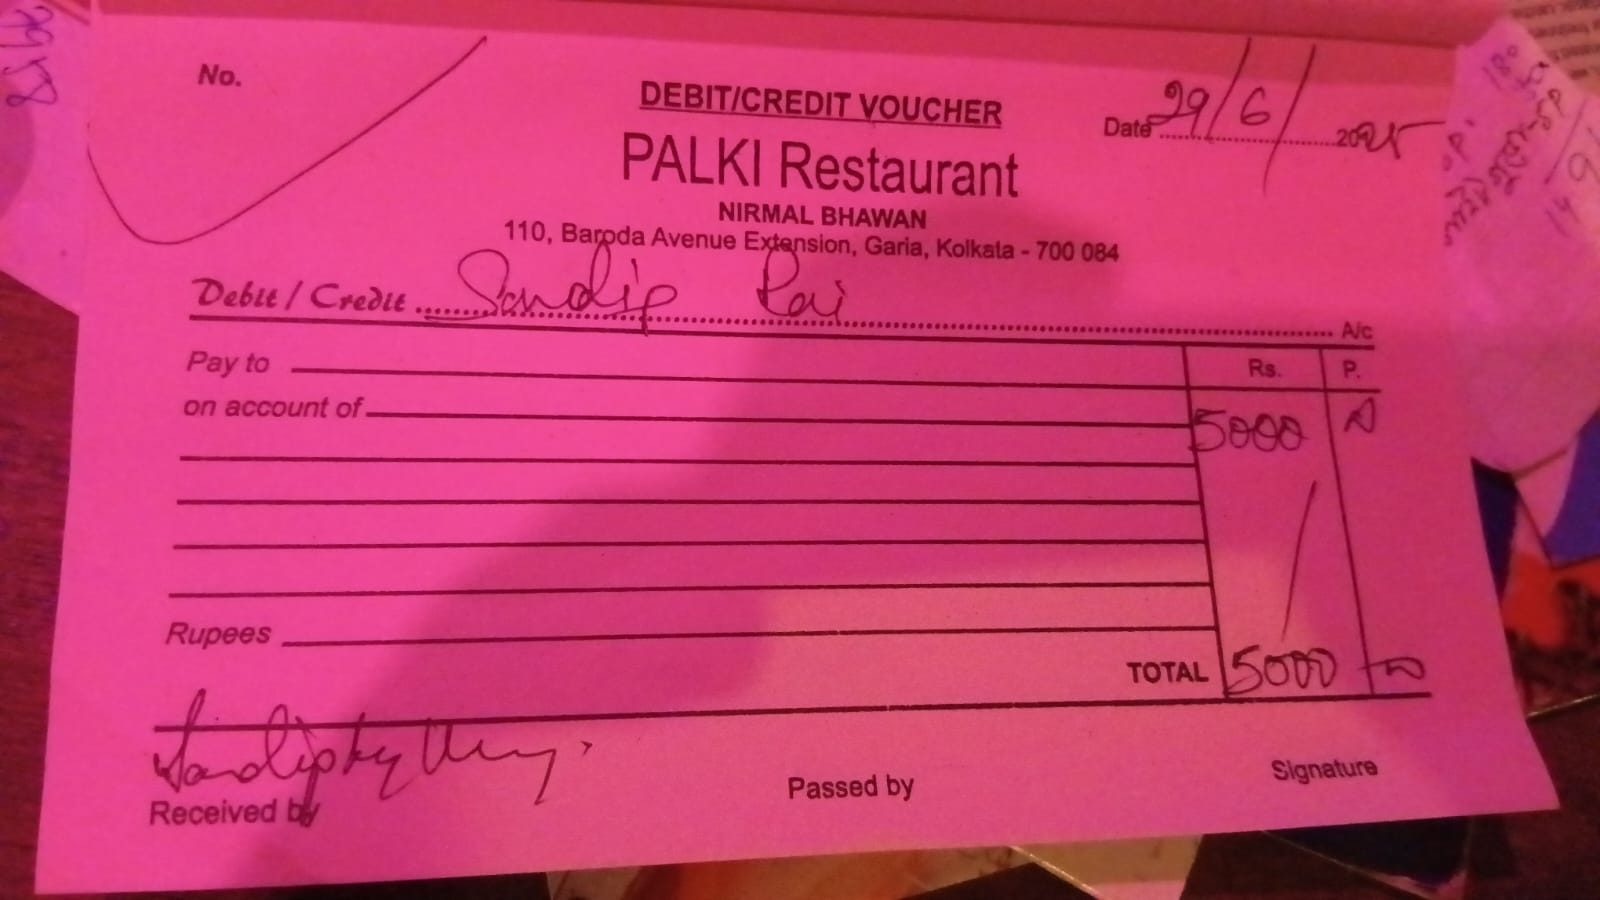 No.
DEBIT/CREDIT VOUCHER
Date 29/6/2025
PALKI Restaurant
NIRMAL BHAWAN
110, Baroda Avenue Extension, Garia, Kolkata - 700 084
Debit / Credit Sandip Rai A/c
Pay to Rs. P.
on account of
5000
Rupees
TOTAL 5000
Received by Passed by Signature